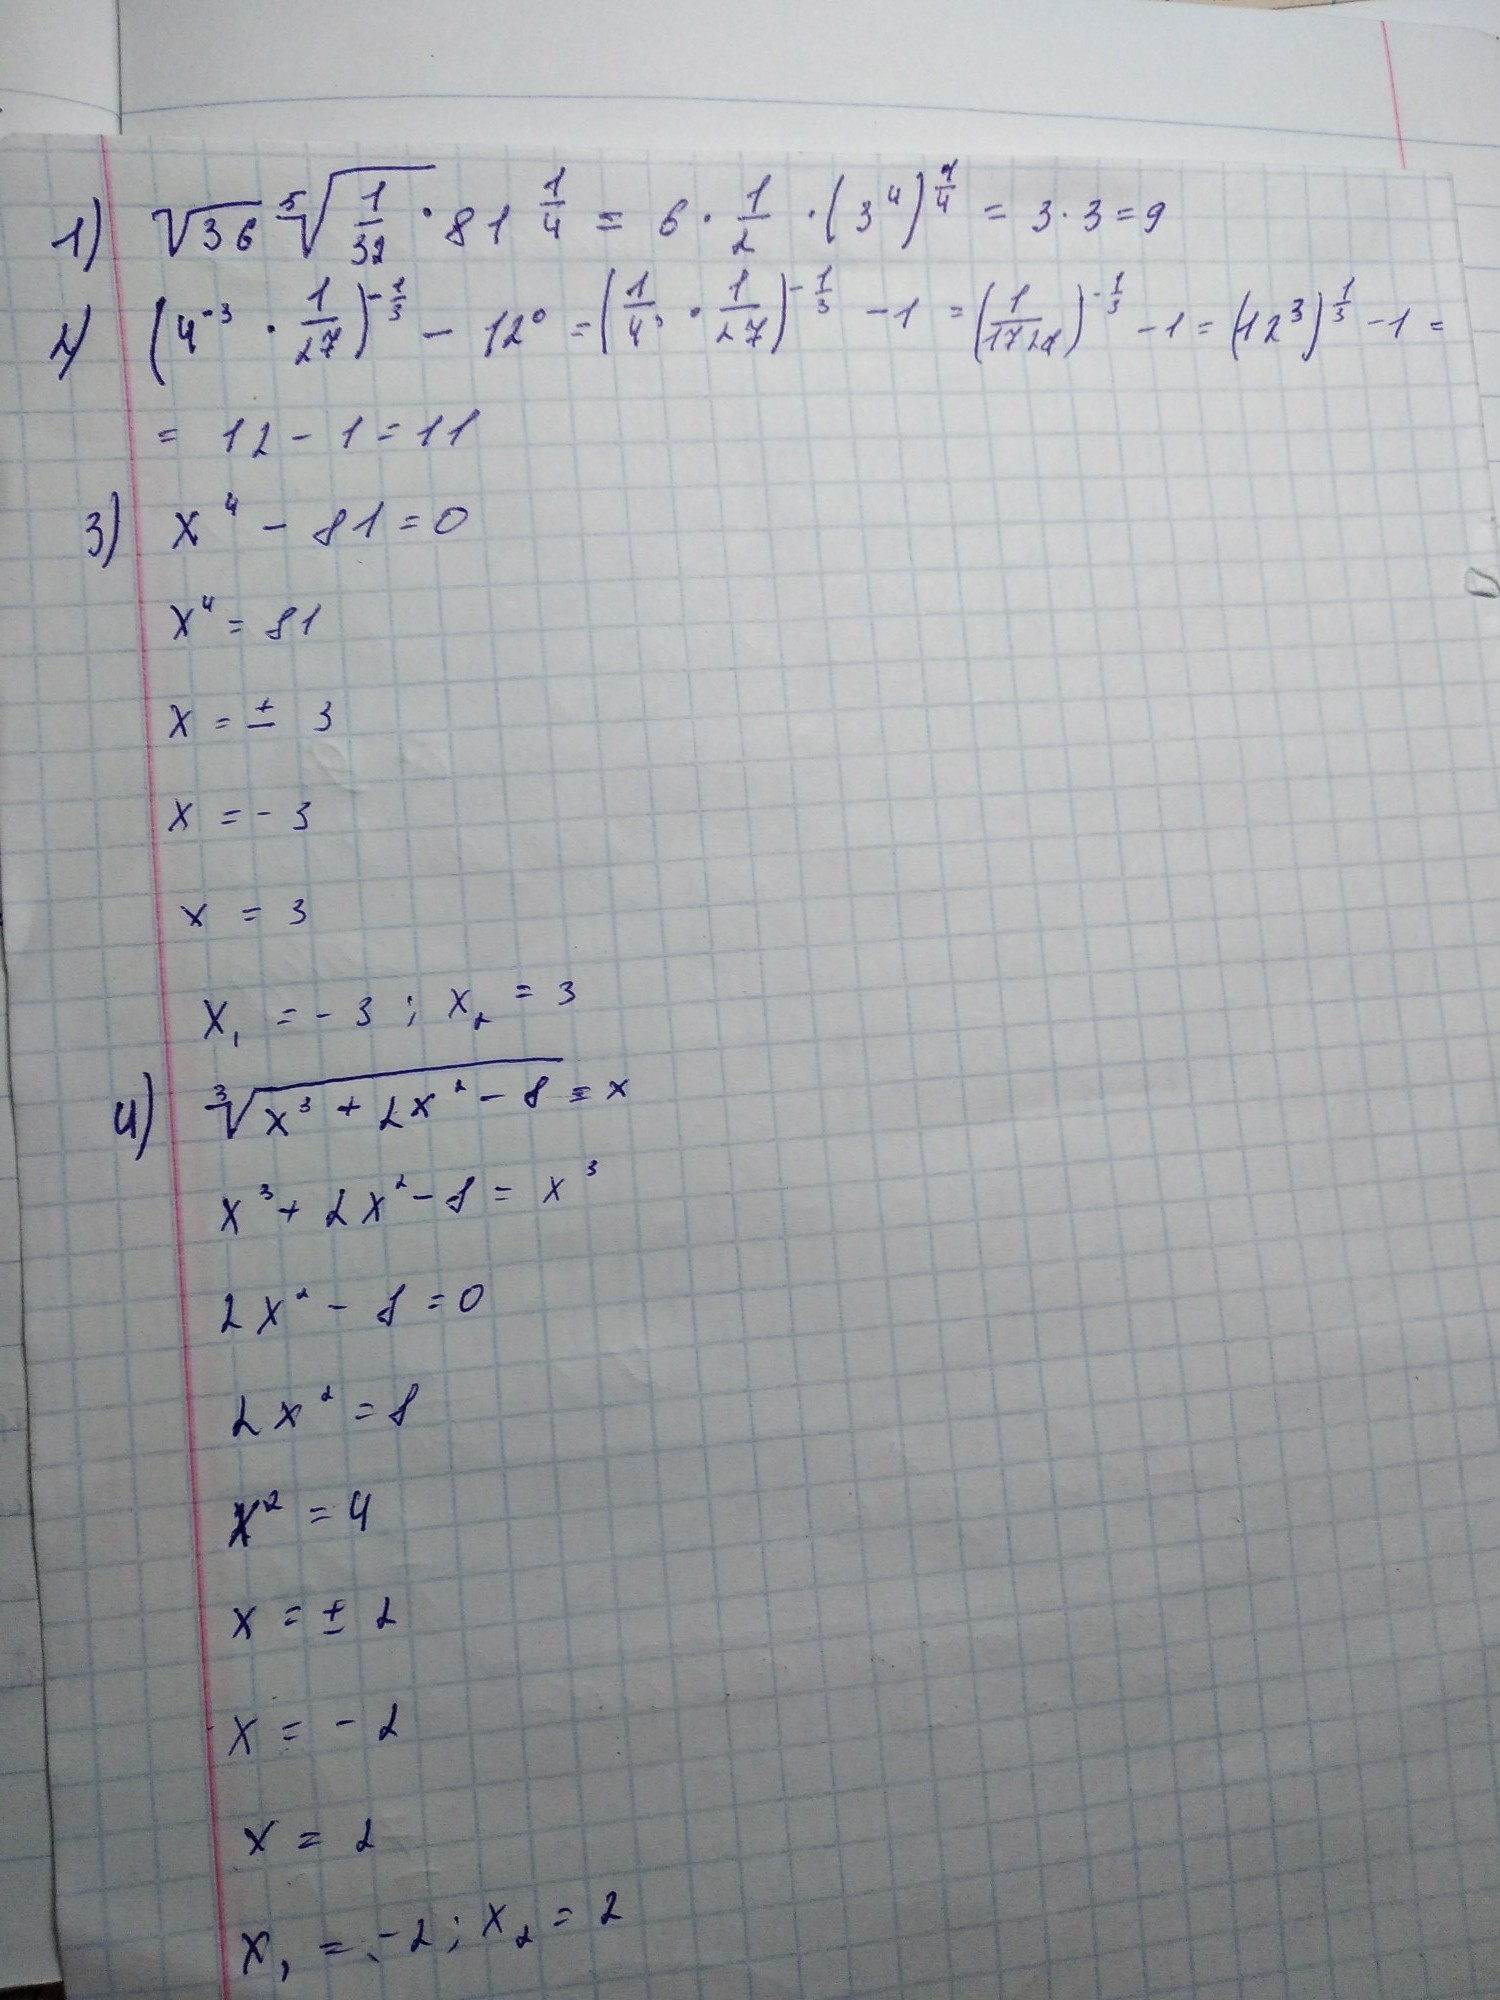 1) √36 ⁵√(1/32) · 81^(1/4) = 6 · 1/2 · (3⁴)^(1/4) = 3 · 3 = 9
2) (4⁻³ · 1/27)^(-1/3) - 12⁰ = (1/4³ · 1/27)^(-1/3) - 1 = (1/1728)^(-1/3) - 1 = (12³)^(1/3) - 1 =
= 12 - 1 = 11
3) x⁴ - 81 = 0
x⁴ = 81
x = ± 3
x = - 3
x = 3
x₁ = - 3 ; x₂ = 3
4) ³√(x³ + 2x² - 8) = x
x³ + 2x² - 8 = x³
2x² - 8 = 0
2x² = 8
x² = 4
x = ± 2
x = - 2
x = 2
x₁ = -2 ; x₂ = 2